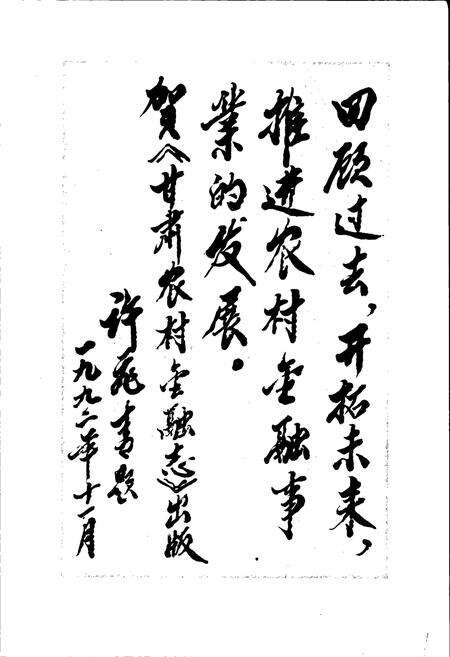 回顾过去，开拓未来，
推进农村金融事
业的发展。
贺《甘肃农村金融志》出版
许飞青题
一九九二年十一月